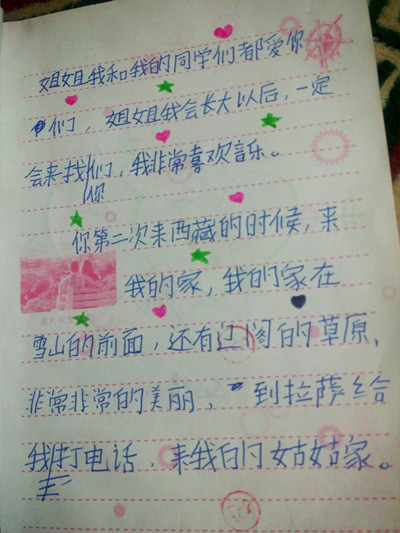 姐姐我和我的同学们都爱你
们，姐姐我会长大以后，一定
会来找你们，我非常喜欢音乐。
你第二次来西藏的时候，来
我的家，我的家在
雪山的前面，还有辽阔的草原，
非常非常的美丽，到拉萨给
我打电话，来我的姑姑家。